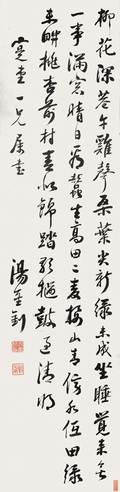 柳花深巷午雞聲桑葉尖新綠未成坐睡覺來無
一事滿窗晴日看蠶生高田二麥接山青傍水低田綠
未畊桃杏滿村春似錦踏歌椎鼓過清明
定堂一兄屬書
湯金釗